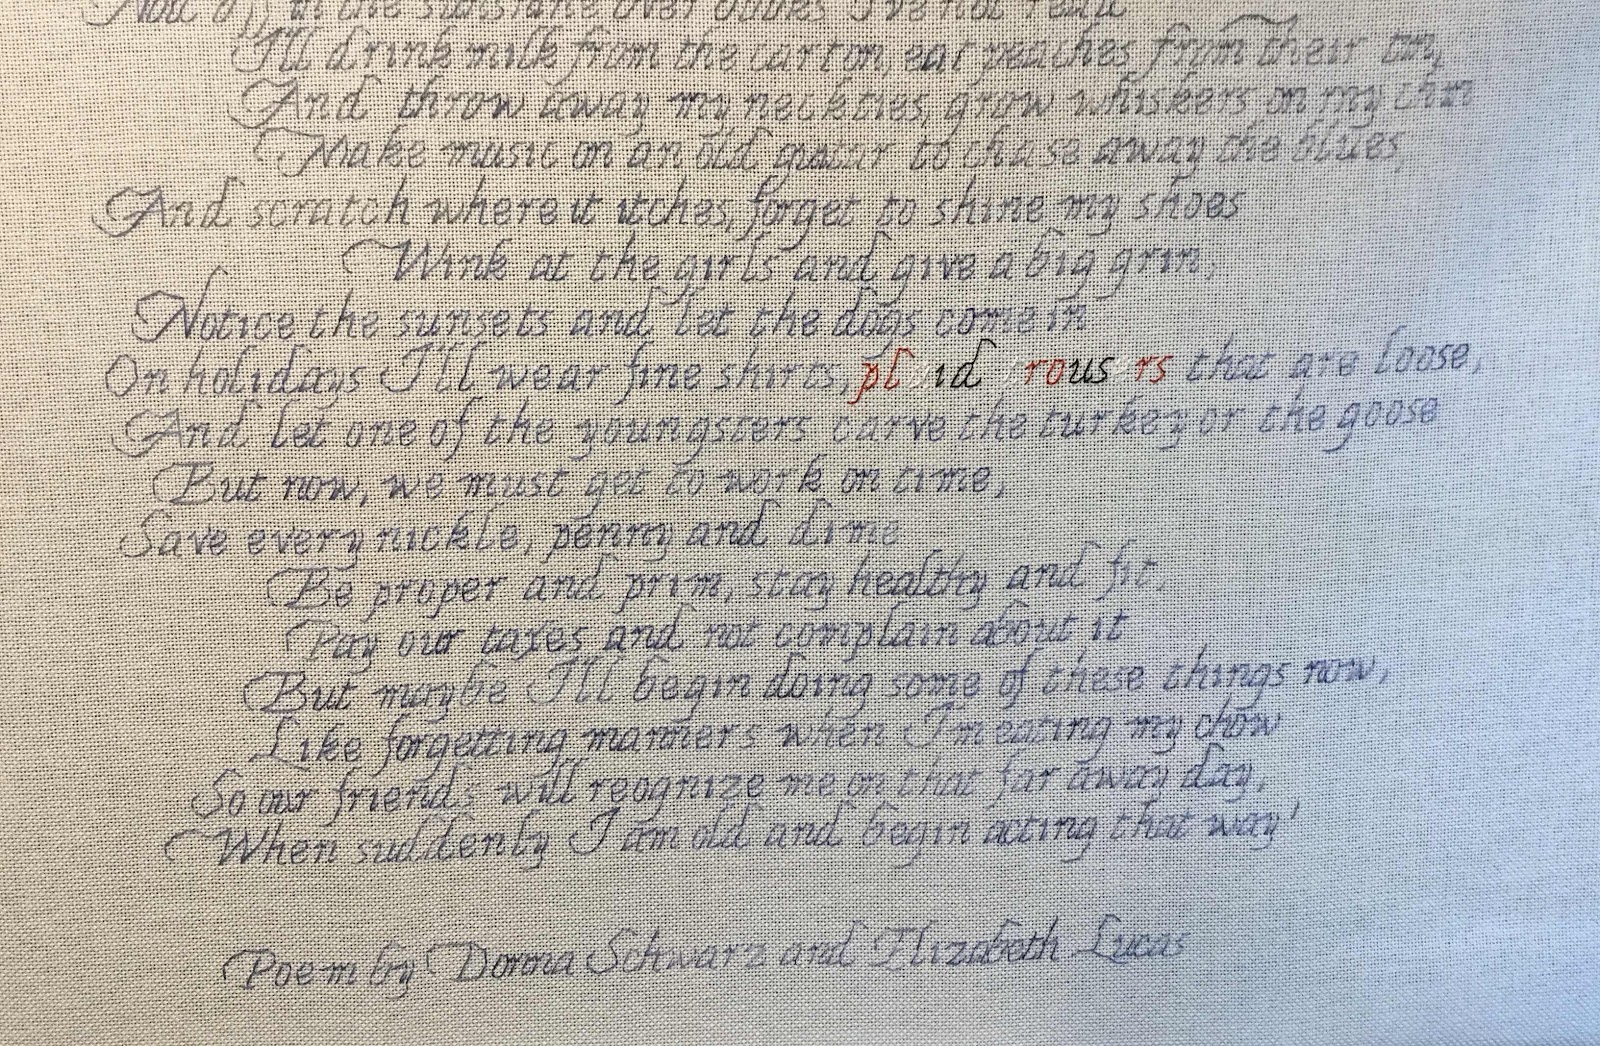 Nod off in the sunshine over books I've not read
I'll drink milk from the carton, eat peaches from their tin,
And throw away my neckties, grow whiskers on my chin
Make music on an old guitar to chase away the blues,
And scratch where it itches, forget to shine my shoes
Wink at the girls and give a big grin,
Notice the sunsets and let the dogs come in
On holidays I'll wear fine shirts, pl id rous rs that are loose,
And let one of the youngsters carve the turkey or the goose
But now, we must get to work on time,
Save every nickle, penny and dime
Be proper and prim, stay healthy and fit
Pay our taxes and not complain about it
But maybe I'll begin doing some of these things now,
Like forgetting manners when I'm eating my chow
So our friends will reognize me on that far away day,
When suddenly I am old and begin acting that way!
Poem by Donna Schwarz and Elizabeth Lucas